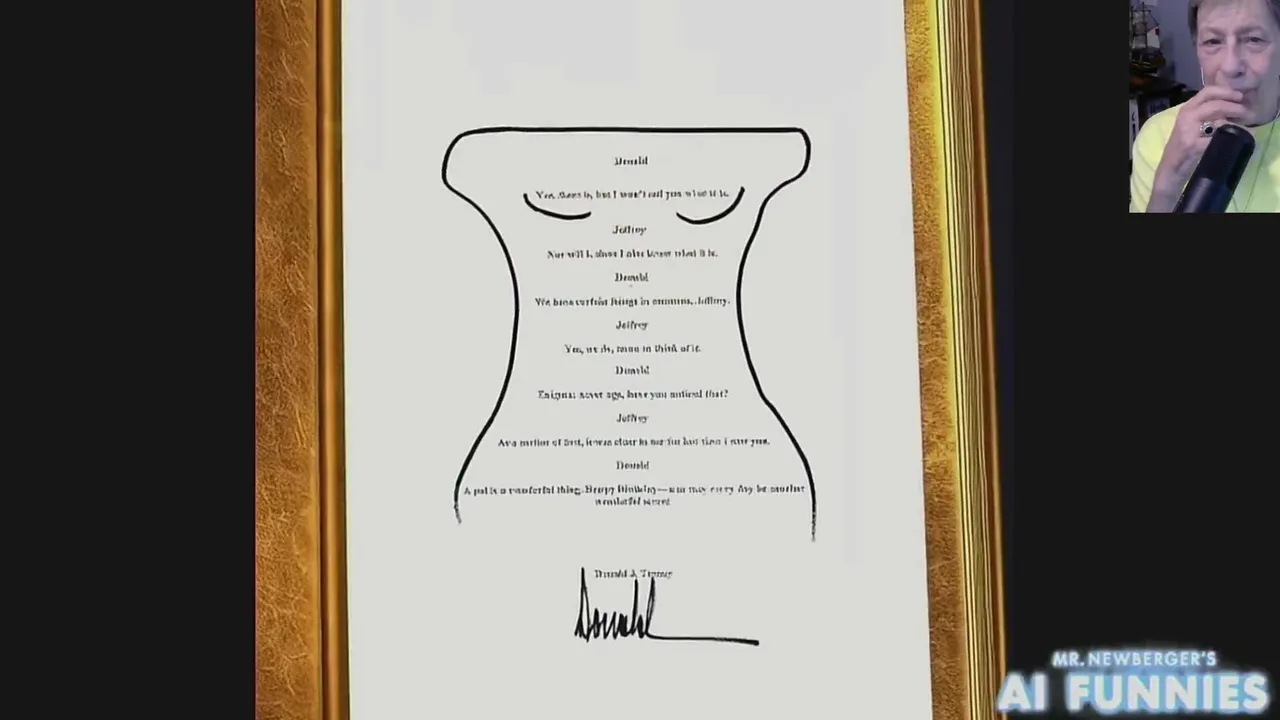 Donald
Yes, there is, but I won't tell you what it is.
Jeffrey
Nor will I, since I also know what it is.
Donald
We have certain things in common, Jeffrey.
Jeffrey
Yes, we do, come to think of it.
Donald
Enigmas never age, have you noticed that?
Jeffrey
As a matter of fact, it was clear to me the last time I saw you.
Donald
A pal is a wonderful thing. Happy Birthday — and may every day be another
wonderful secret
Donald J. Trump
Donald
MR. NEWBERGER'S
AI FUNNIES